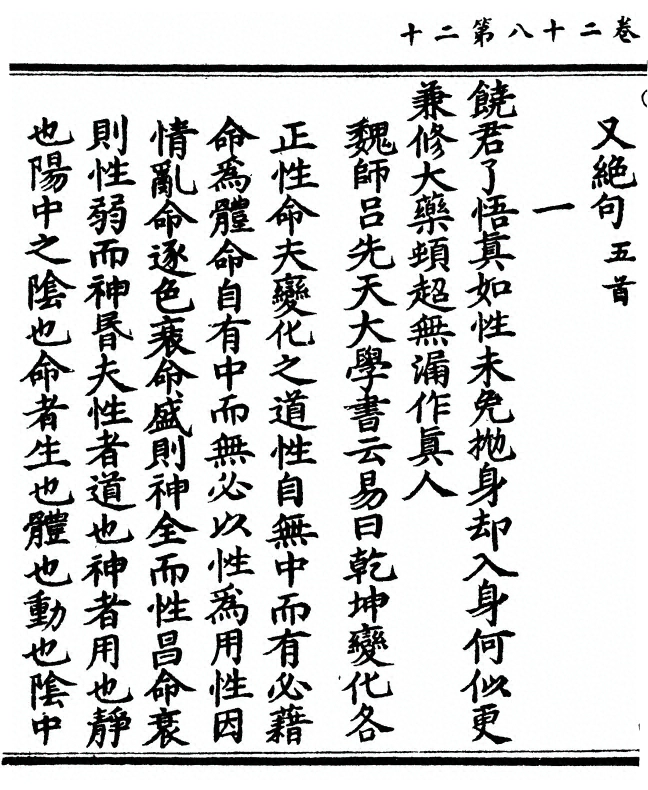 卷二十八第二十
又絕句五首
一
饒君了悟真如性未免抛身却入身何似更
兼修大藥頓超無漏作真人
魏師吕先天大學書云易曰乾坤變化各
正性命夫變化之道性自無中而有必藉
命爲體命自有中而無必以性爲用性因
情亂命逐色衰命盛則神全而性昌命衰
則性弱而神昬夫性者道也神者用也靜
也陽中之陰也命者生也體也動也陰中